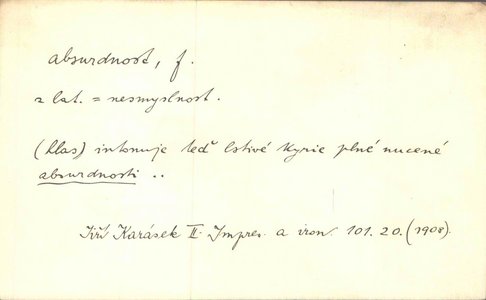 absurdnost, f.
z lat. = nesmyslnost.
(hlas) intonuje teď lstivé Kyrie plné nucené
absurdnosti ..
Jiří Karásek II. Impres. a iron. 101. 20. (1908).